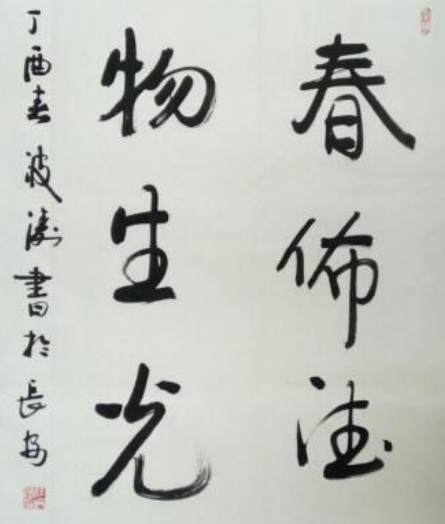 春佈德
物生光
丁酉春波涛書於長安